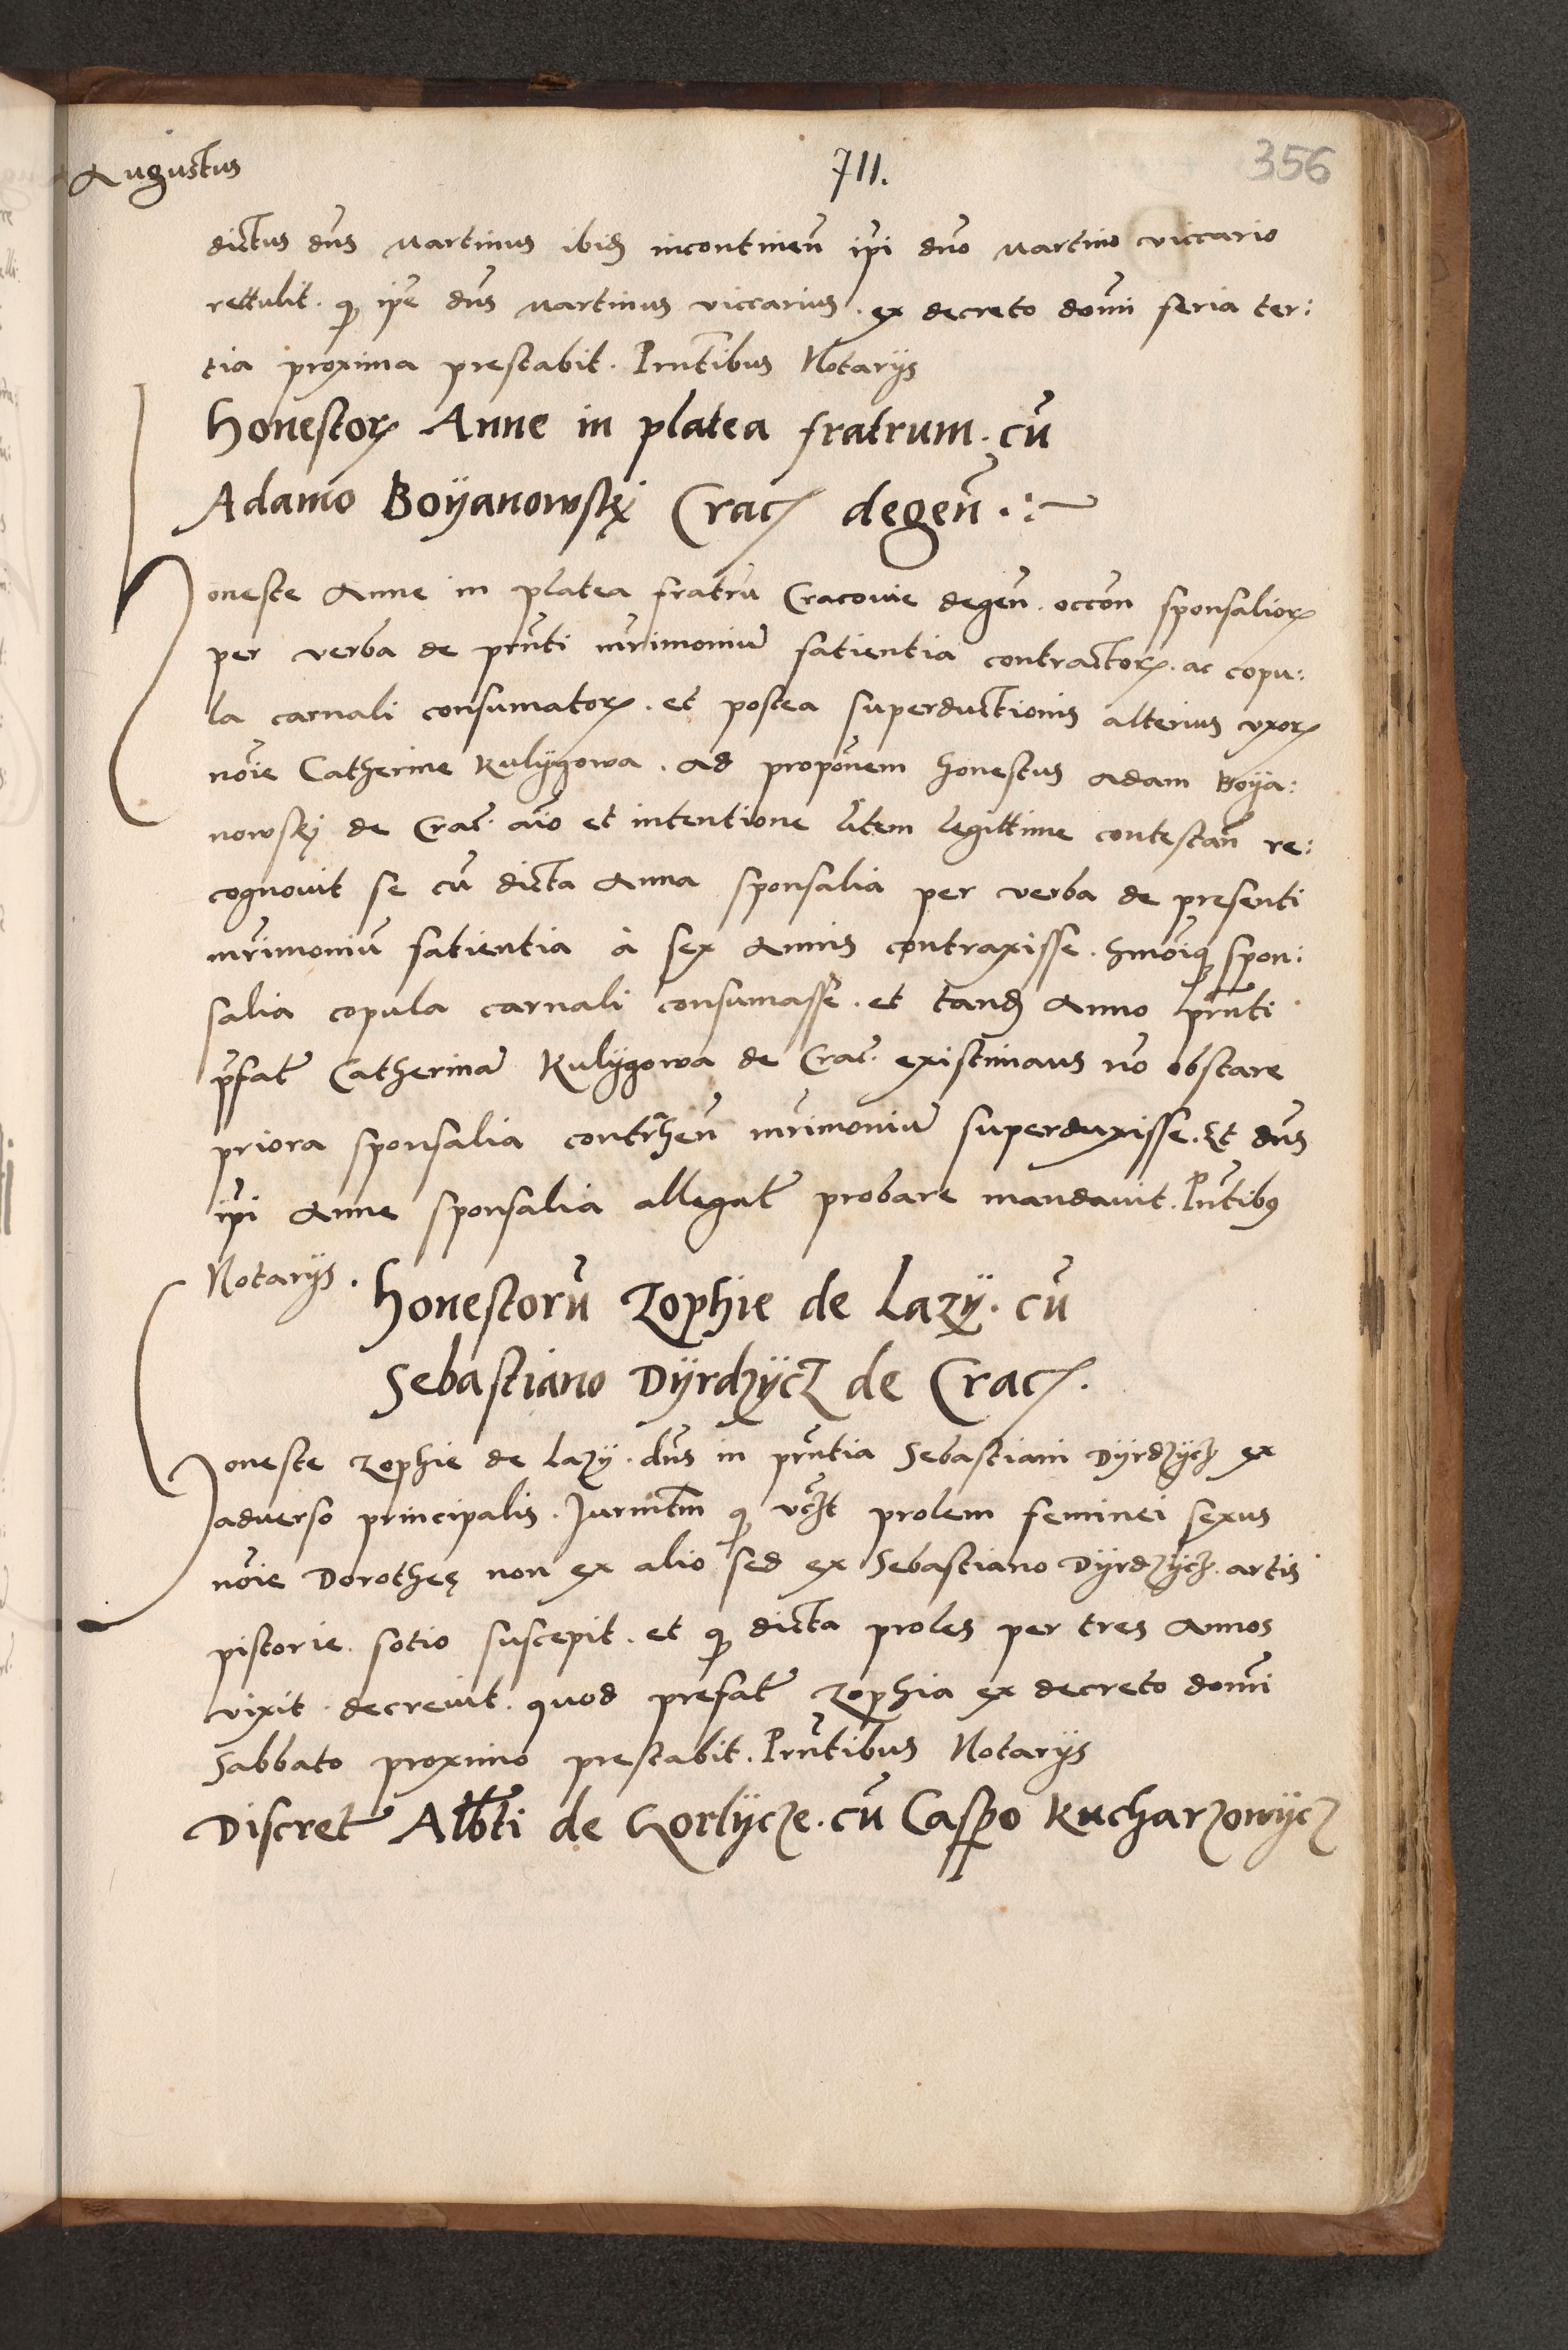 Augustus
711.
356
dictus dns Martinus ibid incontinen ipi dno Martino viccario
rettulit. q ipe dns Martinus viccarius. ex decreto domi feria ter:
tia proxima prestabit. Prntibus Notarijs
Honestor Anne in platea fratrum. cu
Adamo Boÿanowskj Crac degen.
Honeste Anne in platea fratru Cracovie degen. occon sponsalior
per verba de prnti mrimoniu fatientia contractor. ac copu:
la carnali consumator. et postea superductionis alterius uxor
noie Catherine Kulÿgowa. ad proponem honestus Adam Boÿa:
nowskj de Crac. aio et intentione litem legittime contestan re:
cognovit se cu dicta Anna sponsalia per verba de presenti
mrimoniu fatientia à sex Annis contraxisse. hmoiq spon:
salia copula carnali consumasse. et tand Anno prnti
pfat Catherina Kulÿgowa de Crac. existimans no obstare
priora sponsalia contrhen mrimoniu superduxisse. Et dns
ipi Anne sponsalia allegat probare mandavit. Pntibus
Notarijs.
Honestoru Zophie de Lazÿ. cu
Sebastiano Dÿrdzÿcz de Crac.
Honeste Zophie de Lazÿ. dns in prntia Sebastiani Dÿrdzÿcz ex
adverso principalis. Jurmtm q vczt prolem feminei sexus
noie Dorotheę non ex alio sed ex Sebastiano Dÿrdzÿcz. artis
pistorie. sotio suscepit. et q dicta proles per tres Annos
vixit. decrevit. quod prefat Zophia ex decreto domi
Sabbato proximo prestabit. Prntibus Notarijs
Discret Albti de Gorlÿcze. cu Caspo Kucharzowÿcz